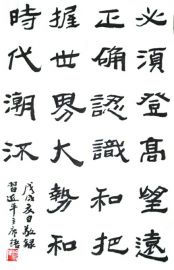 必須登高望遠
正确認識和把
握世界大勢和
時代潮流
戊戌夏日敬録
習近平主席語